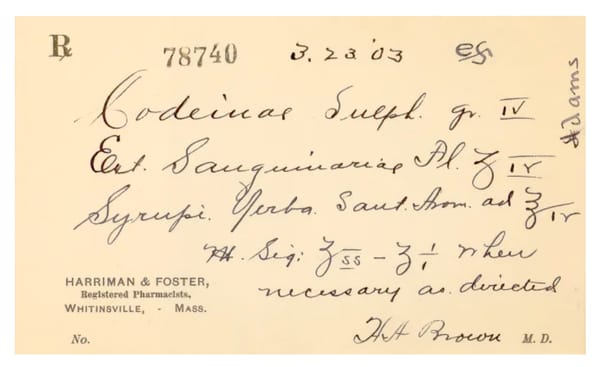 ℞ 78740 3.23'03
Adams
Codeinae Sulph. gr. IV
Ext. Sanguinariae Fl. ʒ IV
Syrupi. Yerba. Sant. Arom. ad ℥ IV
M. Sig: ʒ ss - ʒ i when
necessary as directed
HARRIMAN & FOSTER,
Registered Pharmacists,
WHITINSVILLE, - MASS.
No.
H A Brown M. D.